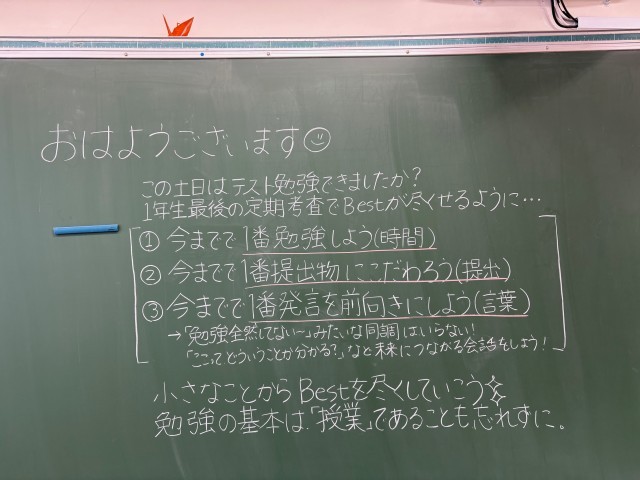 おはようございます☺
この土日はテスト勉強できましたか？
1年生最後の定期考査でBestが尽くせるように…
① 今までで1番勉強しよう(時間)
② 今までで1番提出物にこだわろう(提出)
③ 今までで1番発言を前向きにしよう(言葉)
→「勉強全然してない〜」みたいな同調はいらない！
「ここってどういうことか分かる？」など未来につながる会話をしよう！
小さなことからBestを尽くしていこう
勉強の基本は「授業」であることも忘れずに。